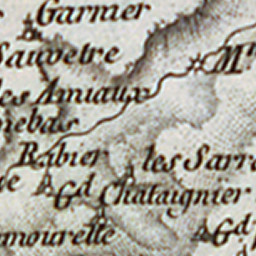 Garnier
Sauvetre
les Amiaux
Rabier
les Sarr
Gd Chataignier
Gd
mourette